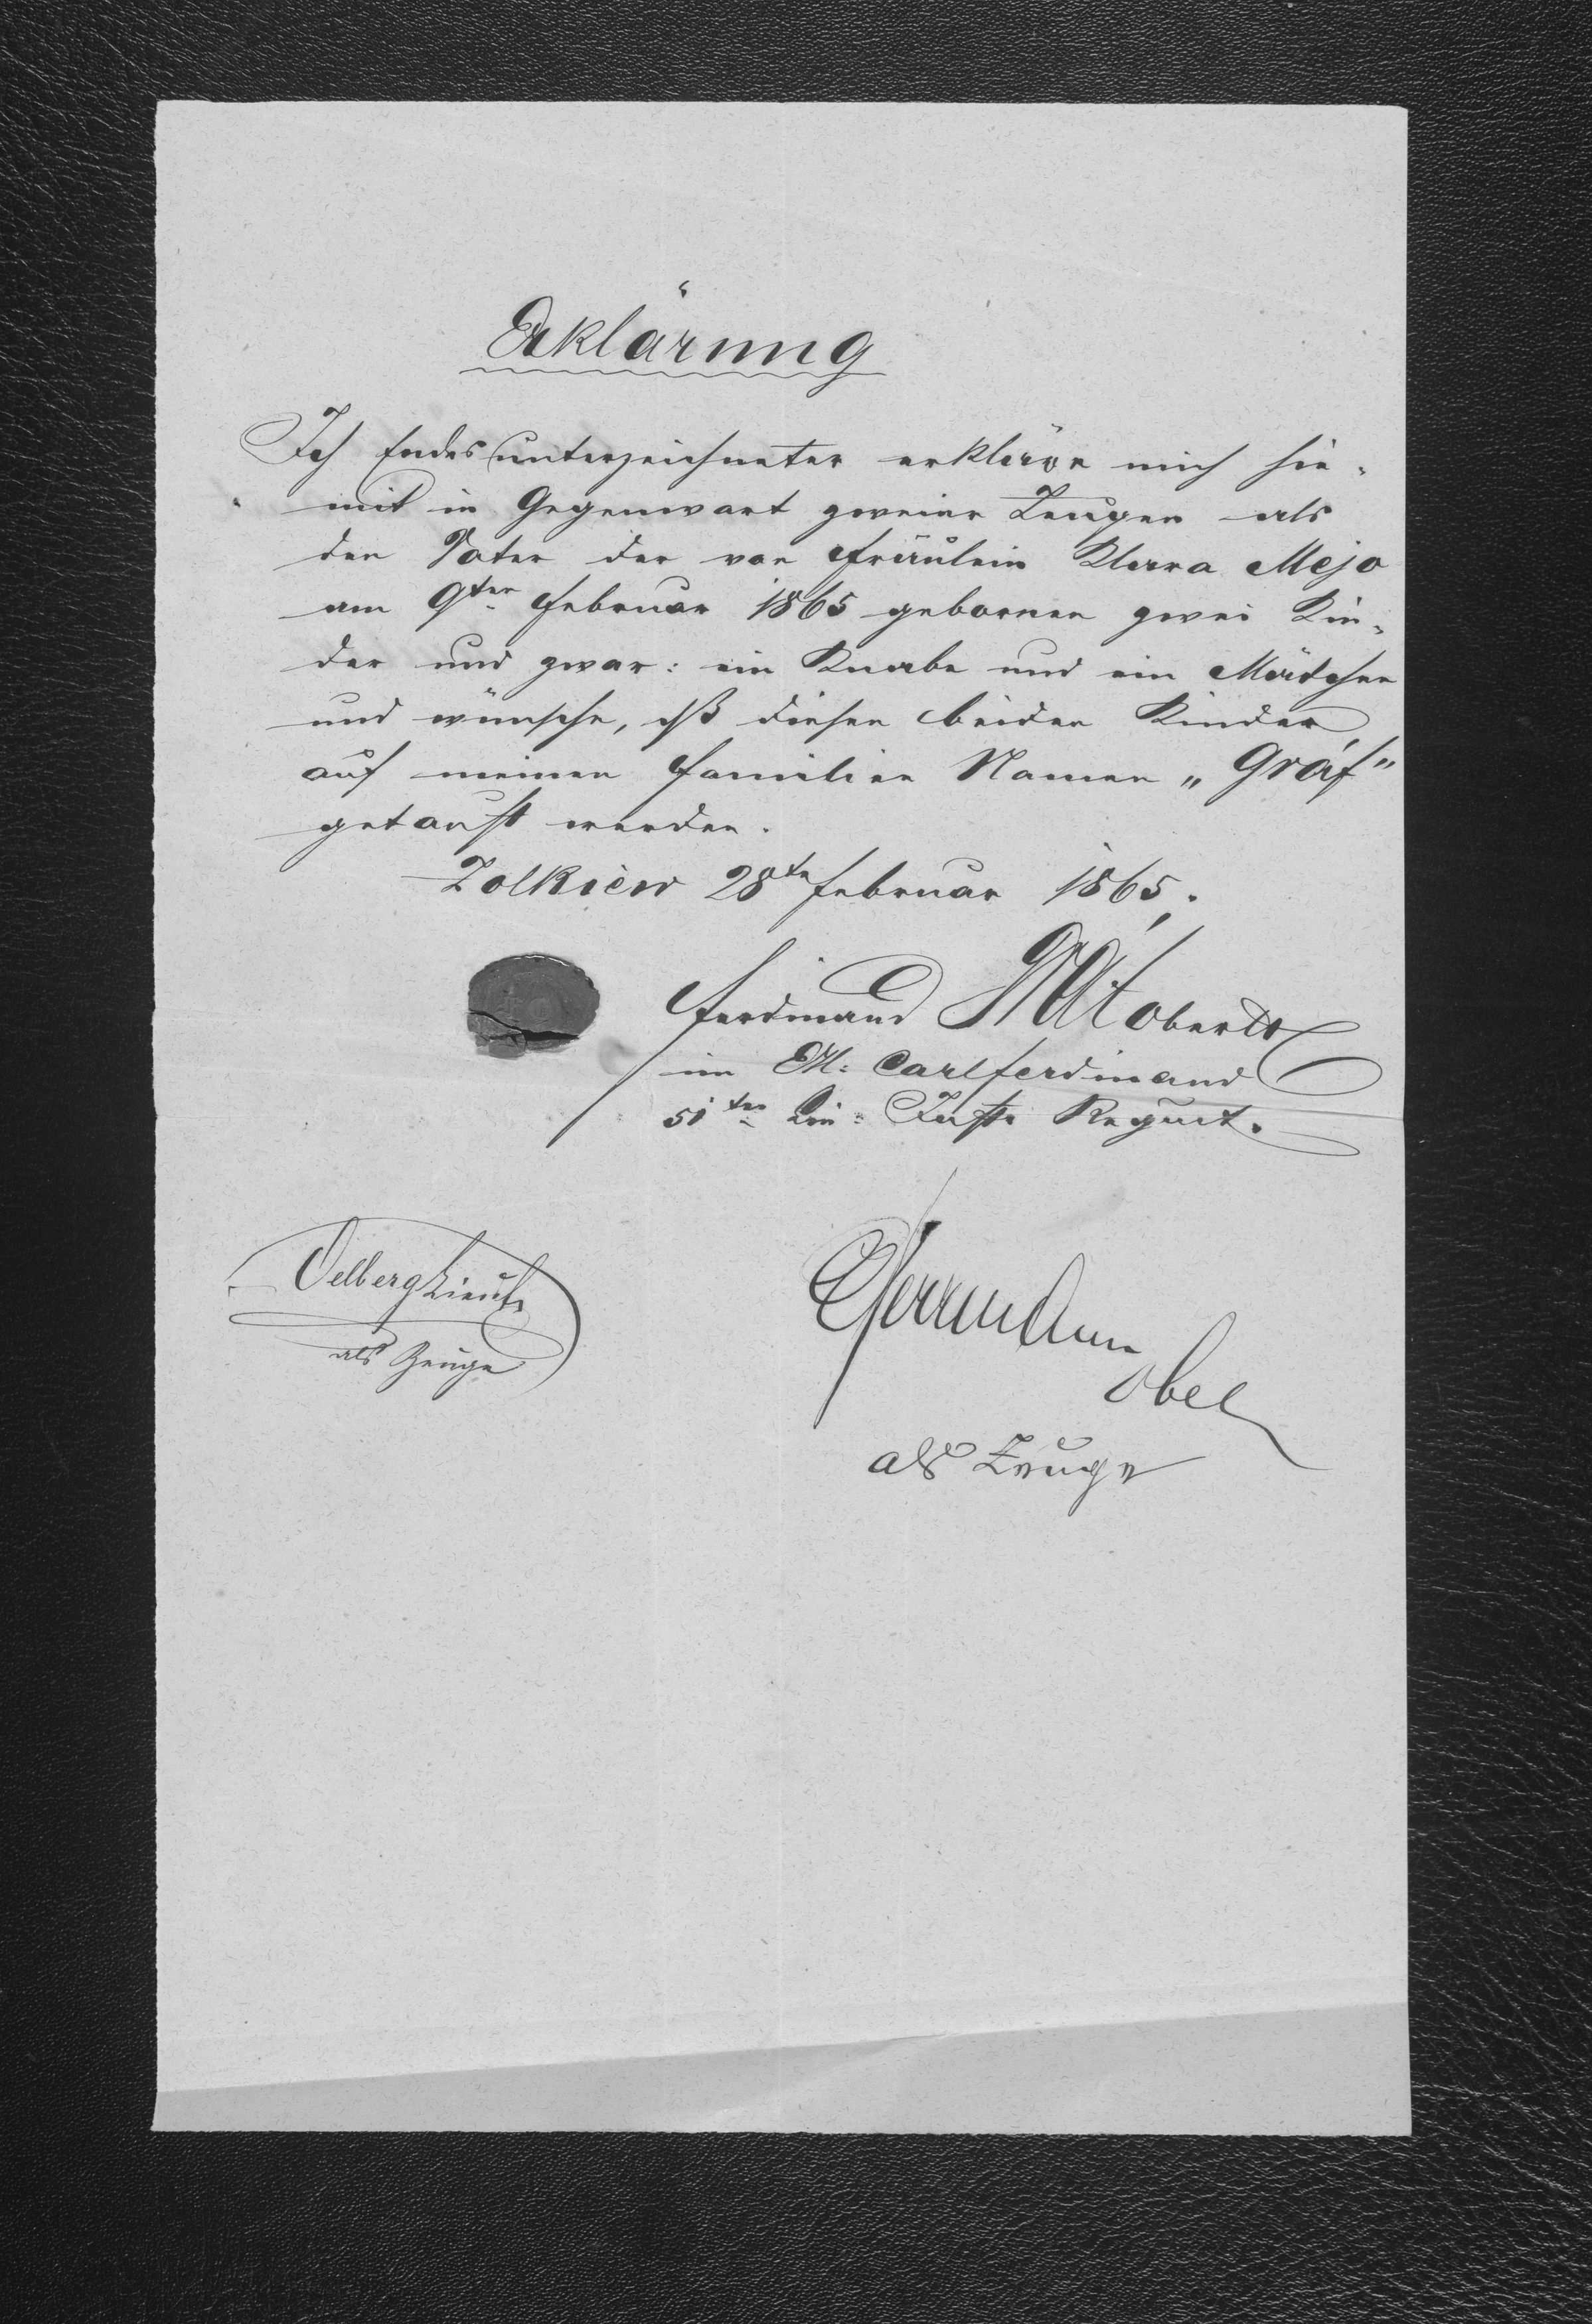 Erklärung
Ich Endesunterzeichneter erkläre mich hie-
mit in Gegenwart zweier Zeugen als
den Vater der von Fräulein Klara Mejo
am 9ten Februar 1865 gebornen zwei Kin-
der und zwar: ein Knabe und ein Mädchen
und wünsche, dß diesen beiden Kinder
auf meinen Familien Namen „Gráf"
getauft werden.
Zolkiew 28te Februar 1865.
Ferdinand Oberlt
im EH: Carl Ferdinand
51ten Lin: Inft. Regmt.
Oelberg Lieut.
als Zeuge
als Zeuge